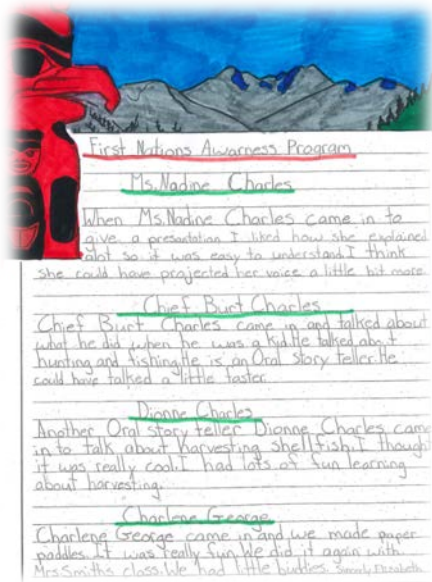 First Nations Awarness Program
Ms. Nadine Charles
When Ms. Nadine Charles came in to
give a presentation I liked how she explained
alot so it was easy to understand. I think
she could have projected her voice a little bit more.
Chief Burt Charles
Chief Burt Charles came in and talked about
what he did when he was a kid. He talked about
hunting and fishing. He is an Oral story teller. He
could have talked a little faster.
Dionne Charles
Another Oral story teller Dionne Charles came
in to talk about harvesting shellfish. I thought
it was really cool. I had lots of fun learning
about harvesting.
Charlene George
Charlene George came in and we made paper
paddles. It was really fun. We did it again with
Mrs Smiths class. We had little buddies. Elizabeth